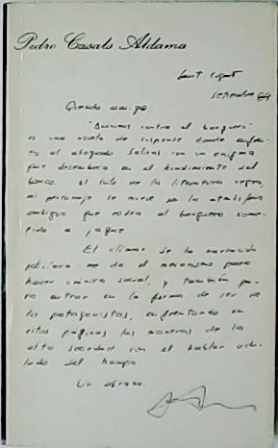 Pedro Casals Aldama
Sant Cugat
Setiembre
Querido amigo
"Disparando contra el banquero"
es una novela de suspense donde enfren-
to al abogado Salinas con un enigma
que desemboca en el hundimiento del
banco. Al estilo de la literatura negra,
mi personaje se mueve en la atmósfera
ambigua que rodea al banquero some-
tido a jaque
El clima de la narración
policíaca me da el mecanismo para
hacer crónica social, y también pa-
ra entrar en la forma de ser de
los protagonistas, enfrentando en
estas páginas las maneras de la
alta sociedad con el hablar
del hampa
Un abrazo